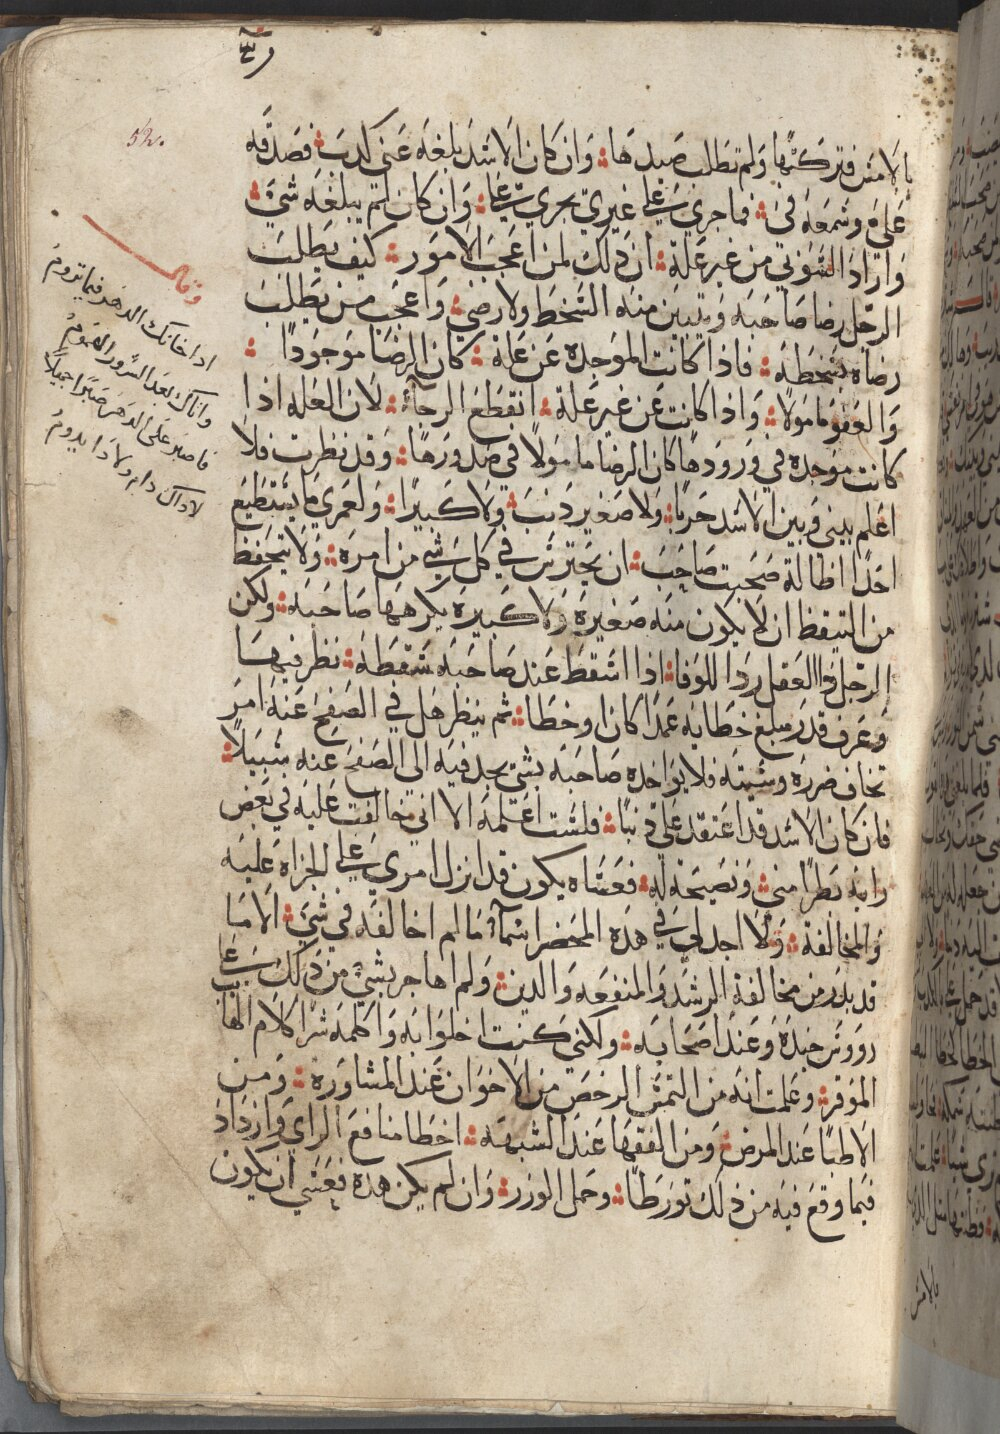 52.
بالامس فتركتها ولم تطلب صيدها وان كان الاسد بلغه عني كدب فصدقه
علي وسمعه في فما جرى على غيري يجري علي وان كان لم يبلغه شي
واراد السو بي من غير علة ان ذلك لمن اعجب الامور كيف يطلب
الرجل رضا صاحبه ويتبين منه السخط ولا رضي واعجب من يطلب
رضاه بسخطه فاذا كانت الموجده عن علة كان الرضا موجودا
والعفو مامولا واذا كانت عن غير علة انقطع الرجا لان العله اذا
كانت موجده في ورودها كان الرضا مامولا في صدورها وقد نظرت فلا
اعلم بيني وبين الاسد حربا ولا صغير ذنب ولا كبيرا ولعمري ما يستطيع
احدا اطالة صحبت صاحب ان يحترس في كل شي من امره ولا يتحفظ
من التيقظ ان لا يكون منه صغيرة ولا كبيرة يكرهها صاحبه ولكن
الرجل ذوا العقل ردا للوفا اذا اسقط عند صاحبه سقطة نظر فيها
وعرف قدر مبلغ خطايه عمدا كان او خطا ثم ينظر هل في الصفح عنه امر
تخاف ضرره وشينه فلا يواخده صاحبه بشي يجد فيه الى الصفح عنه سبيلا
فان كان الاسد قد اعتقد علي ذنبا فلست اعلمه الا اني خالفت عليه في بعض
رايه نظرا مني ونصيحة له فعساه يكون قد انزل امري على الجراه عليه
والمخالفة ولا اجد لي في هذه المحضر اثما ما لم اخالفه في شي الا ما
قد بدر من مخالفة الرشد والمنفعه والدين ولم اهاجر بشي من ذلك على
رووس جنده وعند اصحابه ولكني كنت اخلوا به واكلمه سرا كلام الهايب
الموقر وعلمت انه من التمس الرخص من الاخوان عند المشاورة ومن
الاطبا عند المرض ومن الفقها عند الشبهه اخطا منافع الراي وازداذ
فيما وقع فيه من ذلك تورطا وحمل الوزر وان لم يكن هده فعسى ان يكون
وقال
اذا خانك الدهر فيما تروم
واتاك بعد السرور الهموم
فاصبر على الدهر صبرا جميلا
لا ذاك دام ولا ذا يدوم
بالامس